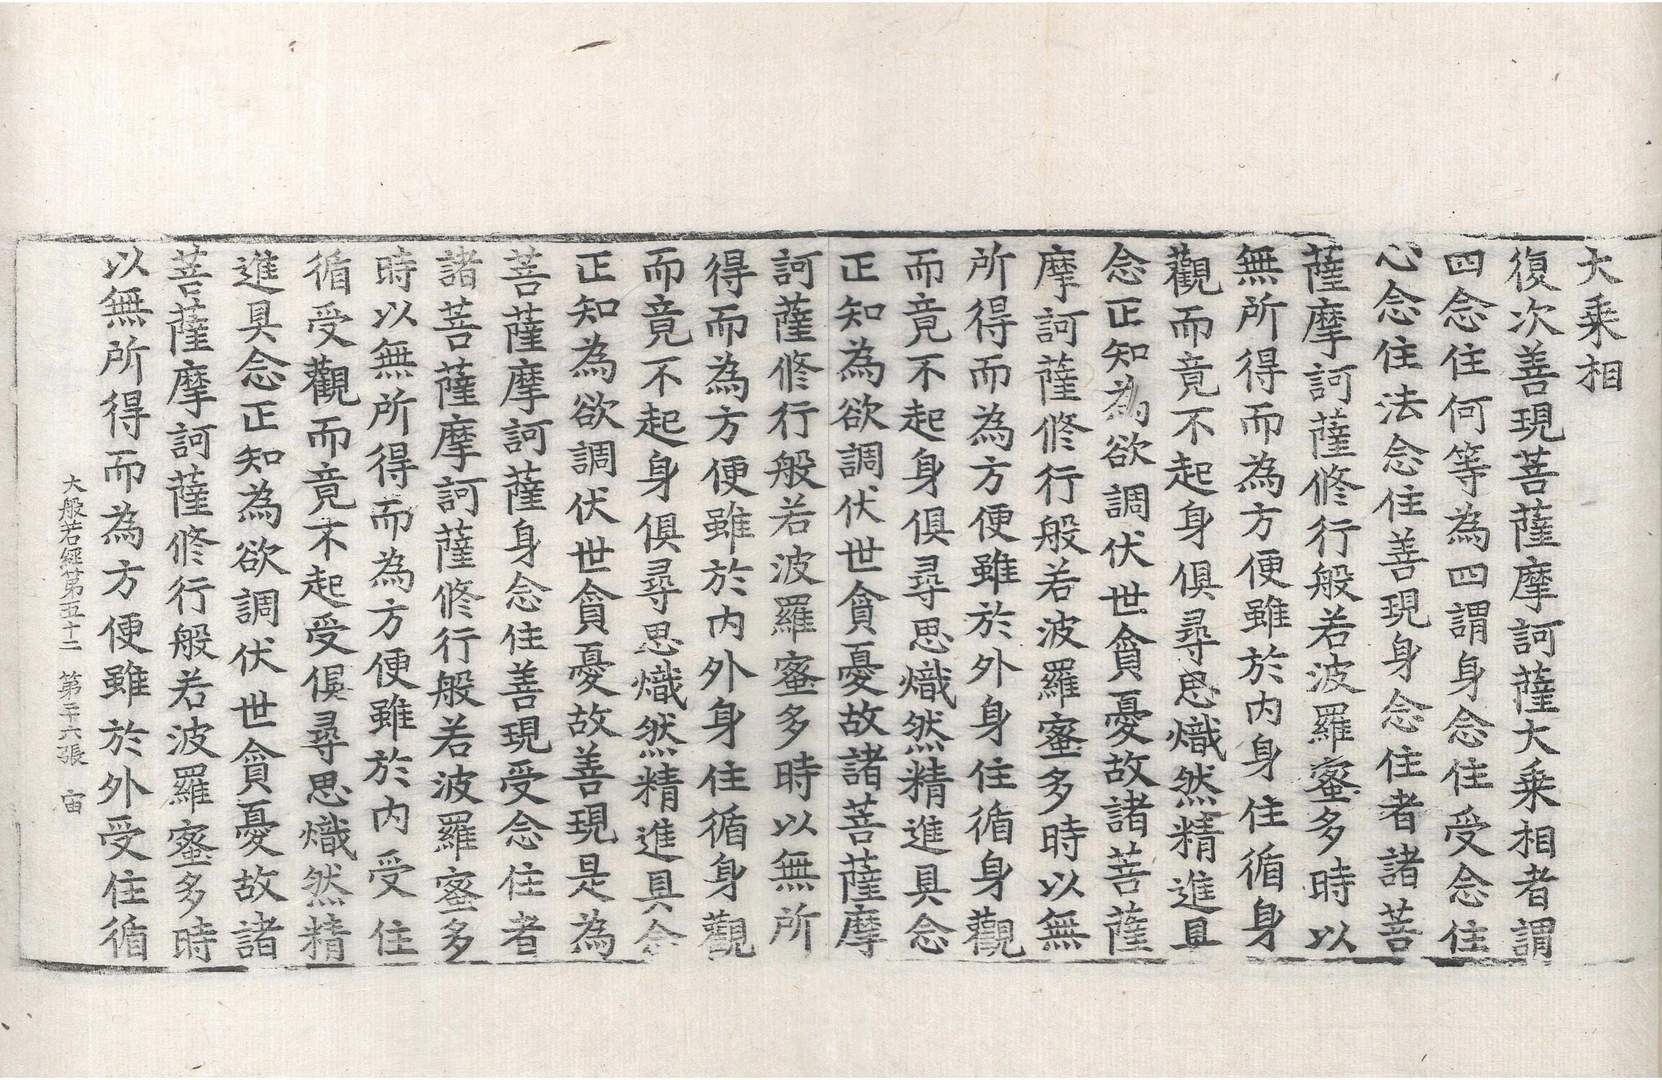 大乘相
復次善現菩薩摩訶薩大乘相者謂
四念住何等為四謂身念住受念住
心念住法念住善現身念住者諸菩
薩摩訶薩修行般若波羅蜜多時以
無所得而為方便雖於內身住循身
觀而竟不起身俱尋思熾然精進具
念正知為欲調伏世貪憂故諸菩薩
摩訶薩修行般若波羅蜜多時以無
所得而為方便雖於外身住循身觀
而竟不起身俱尋思熾然精進具念
正知為欲調伏世貪憂故諸菩薩摩
訶薩修行般若波羅蜜多時以無所
得而為方便雖於內外身住循身觀
而竟不起身俱尋思熾然精進具念
正知為欲調伏世貪憂故善現是為
菩薩摩訶薩身念住善現受念住者
諸菩薩摩訶薩修行般若波羅蜜多
時以無所得而為方便雖於內受住
循受觀而竟不起受俱尋思熾然精
進具念正知為欲調伏世貪憂故諸
菩薩摩訶薩修行般若波羅蜜多時
以無所得而為方便雖於外受住循
大般若經第五十二 第十六張 宙